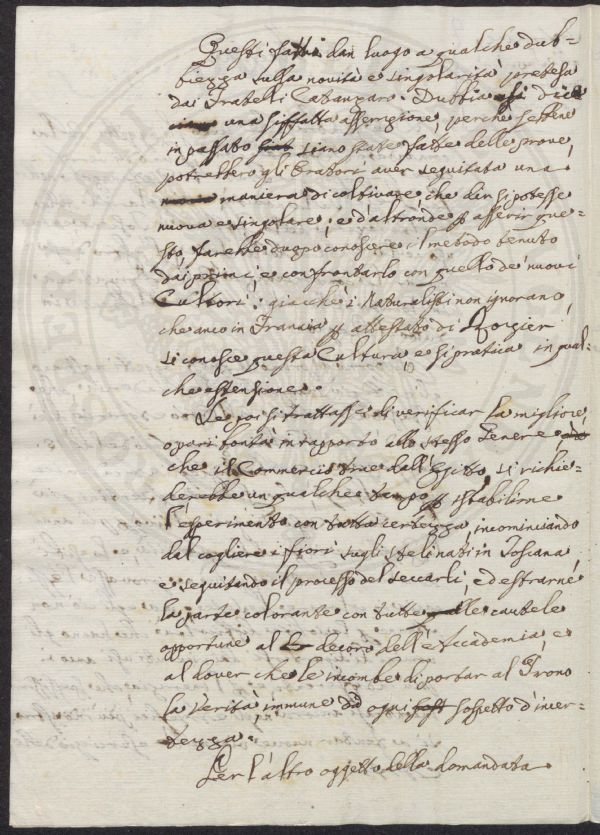 Questi fatti dan luogo a qualche dub=
biezza sulla novità e singolarità pretesa
dai Fratelli Catanzaro. Dubbia si dice
una siffatta asserzione, perchè sebbene
in passato siano state fatte delle prove,
potrebbero gli Oratori aver seguitata una
maniera di coltivare, che dir si potesse
nuova e singolare; e d'altronde p asserir que=
sto, farebbe duopo conoscere il metodo tenuto
dai primi, e confrontarlo con quello de' nuovi
Cultori: giacchè i Naturalisti non ignorano,
che anco in Francia p attestato di Rozier
si conosce questa Cultura, e si pratica in qual=
che estensione.
Se poi si trattasse di verificar la migliore
o pari bontà in rapporto allo stesso Genere
che il Commercio trae dall'Egitto, si richie=
derebbe un qualche tempo p istabilirne
l'esperimento con tutta certezza, incominciando
dal cogliere i fiori sugli steli nati in Toscana
e seguitando il processo del seccarli, ed estrarne
la parte colorante con tutte le cautele
opportune al decoro dell'Accademia, e
al dover che le incombe di portar al Trono
la verità immune da ogni sospetto d'incer=
tezza.
Per l'altro oggetto della domandata